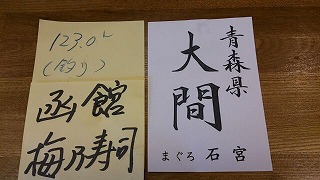 123.0K
(釣り)
函館
梅乃寿司
青森県
大間
まぐろ 石宮